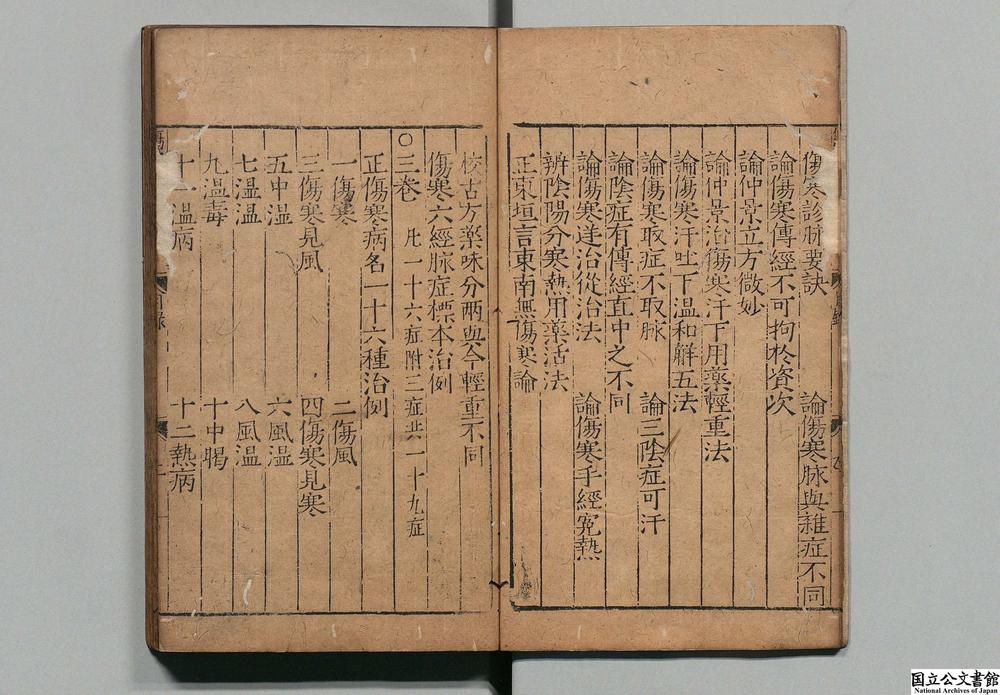 傷寒診脉要訣　論傷寒脉與雜症不同
論傷寒傳經不可拘於資次
論仲景立方微妙
論仲景治傷寒汗下用藥輕重法
論傷寒汗吐下温和觧五法
論傷寒取症不取脉　論三陰症可汗
論陰症有傳經直中之不同
論傷寒逆治從治法　論傷寒手經寃熱
辨陰陽分寒熱用藥活法
正東垣言東南無傷寒論
校古方藥味分兩與今輕重不同
傷寒六經脉症標本治例
○三巻　凡一十六症附三症共一十九症
正傷寒病名一十六種治例
一傷寒　二傷風
三傷寒見風　四傷寒見寒
五中湿　六風温
七温温　八風湿
九温毒　十中暍
十一温病　十二熱病
目錄
国立公文書館
National Archives of Japan